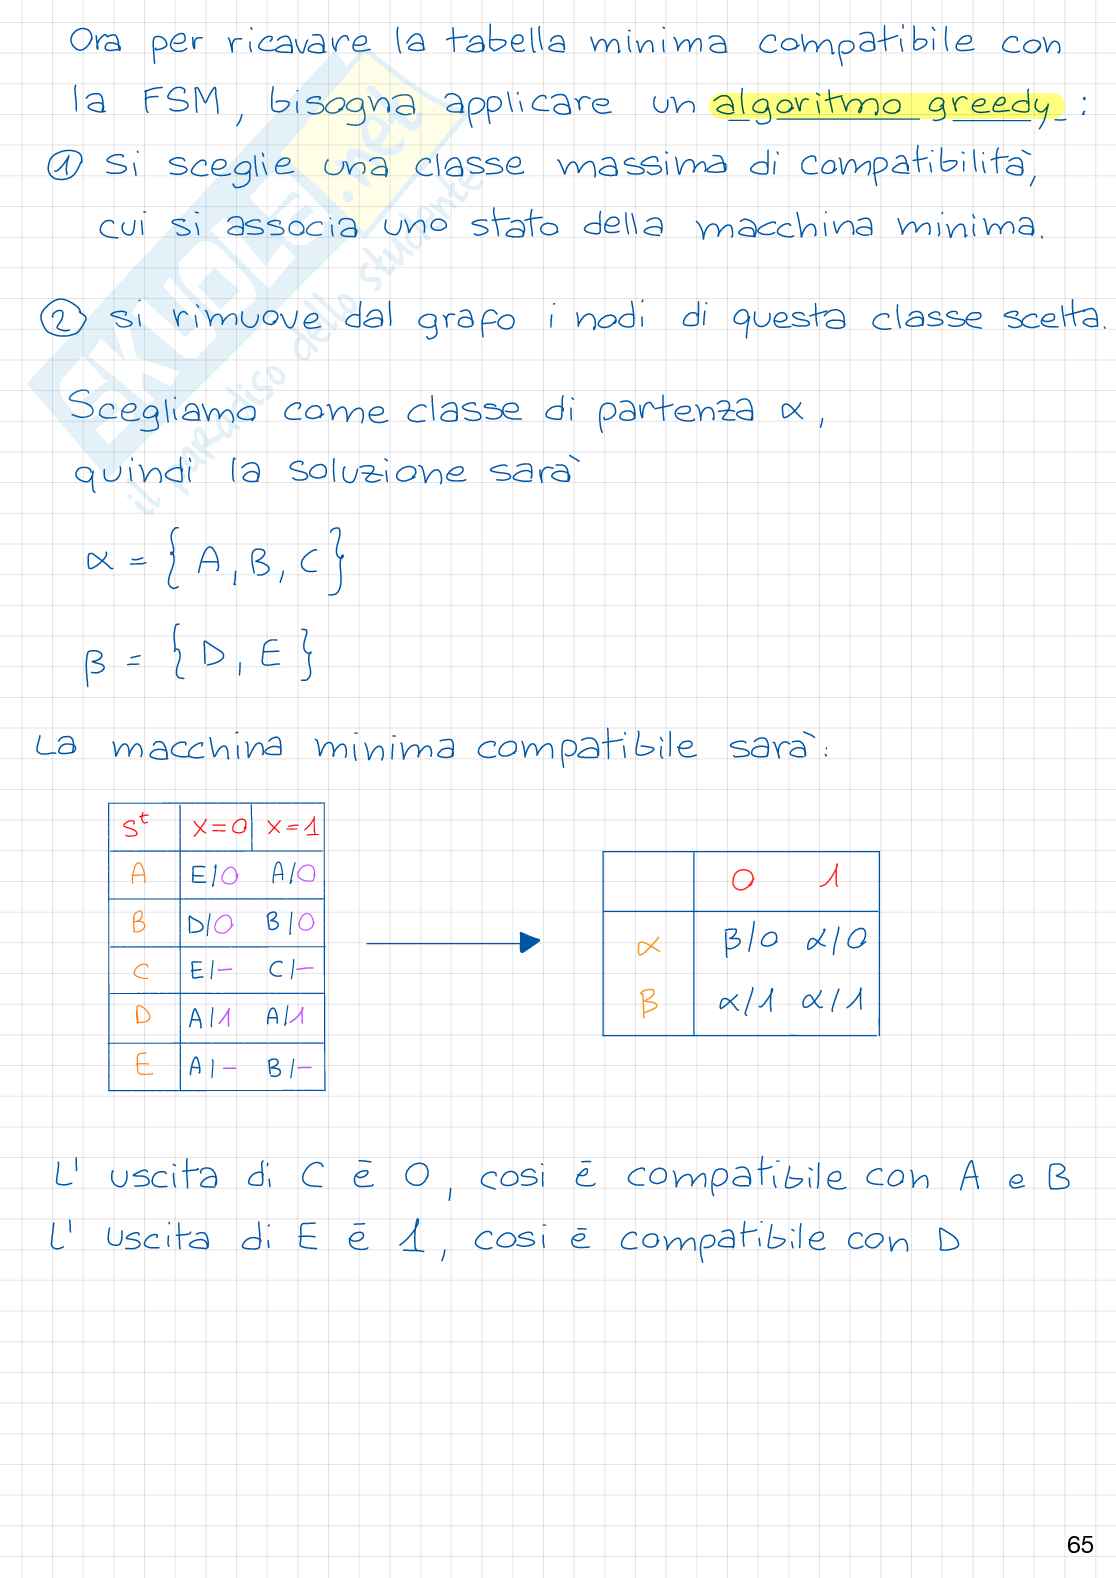 Ora per ricavare la tabella minima compatibile con
la FSM, bisogna applicare un algoritmo greedy :
① si sceglie una classe massima di compatibilità,
cui si associa uno stato della macchina minima.
② si rimuove dal grafo i nodi di questa classe scelta.
Scegliamo come classe di partenza α,
quindi la soluzione sarà
α = { A, B, C }
β = { D, E }
La macchina minima compatibile sarà:
Sᵗ x=0 x=1
A E/0 A/0
B D/0 B/0
C E/- C/-
D A/1 A/1
E A/- B/-
0 1
α β/0 α/0
β α/1 α/1
L' uscita di C ē 0, cosi ē compatibile con A e B
L' uscita di E ē 1, cosi ē compatibile con D
SKUOLA.net
il paradiso dello studente
65